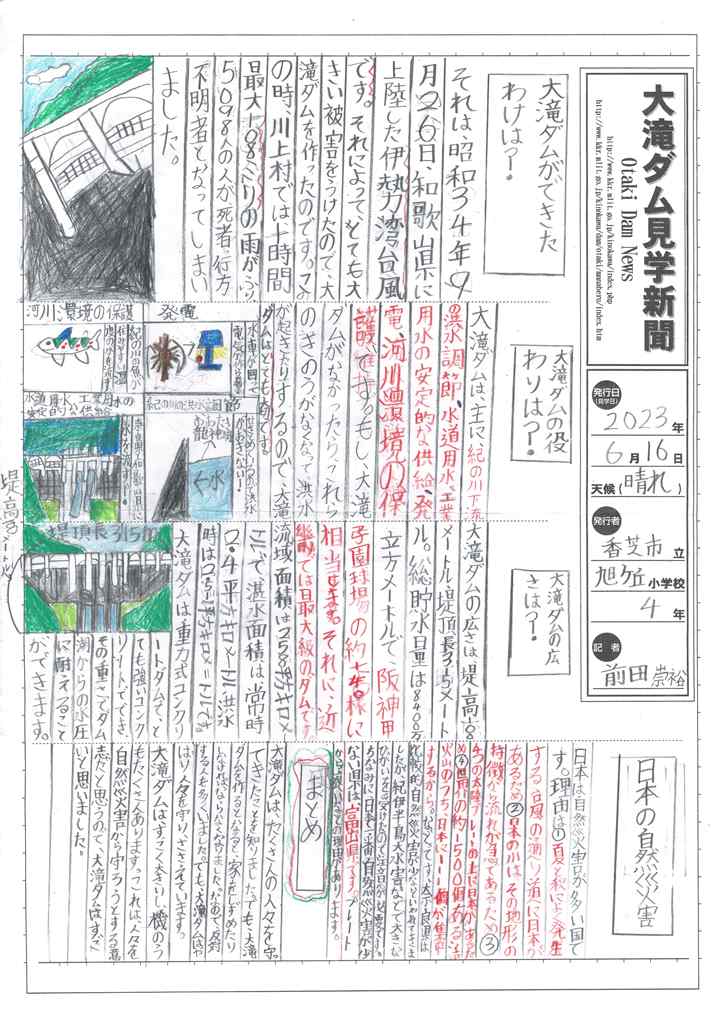 大滝ダム見学新聞
Otaki Dam News
http://www.kkr.mlit.go.jp/kinokawa/index.php
発行日
(見学日)
2023年
6月16日
天候(晴れ)
発行者
香芝市立
旭ケ丘小学校
4年
記者
前田崇裕
大滝ダムができた
わけは?!
それは、昭和34年9
月26日、和歌山県に
上陸した伊勢湾台風
です。それによって、とても大
きい被害をうけたので、大
滝ダムを作ったのです。
の時、川上村では1時間
最大108ミリの雨がふり
5098人の人が死者・行方
不明者となってしまい
ました。
大滝ダムの役
わりは?!
大滝ダムは、主に、紀の川下流
の洪水調節、水道用水、工業
用水の安定的な供給、発
電、河川環境の保
護です。もし、大滝
ダムがなかったらこれら
のきのうがなくなって、洪水
が起きたりするので、大滝
ダムはとても大切です。
発電
河川環境の保護
紀の川の洪水調節
水道用水、工業用水の
安定的な供給
堤頂長315m
大滝ダムの広
さは?!
大滝ダムの広さは、堤上高100
メートル、堤頂長315メート
ル。総貯水量は8400万
立方メートルで、阪神甲
子園球場の約140杯に
相当します。それに、近
畿では最大級のダムです。
流域面積は258平方キロメー
トルで、湛水面積は常時
0.4平方キロメートル、洪水
大滝ダムは重力式コンクリ
ートダムで、と
ても強いコンク
リートでできて、
その重さでダム
湖からの水圧
に耐えること
ができます。
日本の自然災害
日本は自然災害が多い国で
す。理由は①夏と秋によく発生
する台風の通り道に日本が
あるため②日本の川は、その地形の
特徴から流れが急であるため③
4つの大陸プレートの上に日本があるた
め④世界の約1500個ある活
火山のうち日本に111個が集中
するから。などです。
まとめ
大滝ダムは、たくさんの人々を守っ
てきたことを知りました。でも、大滝
ダムを作るとなると、家をしずめたり
する人も多くいました。でも、大滝ダムはや
はり人々を守り、ささえています。
大滝ダムはすごく大きいし、機のう
もたくさんあります。これは、人々を
自然災害から守ろうとする意
志だと思うので、大滝ダムはすご
いと思いました。